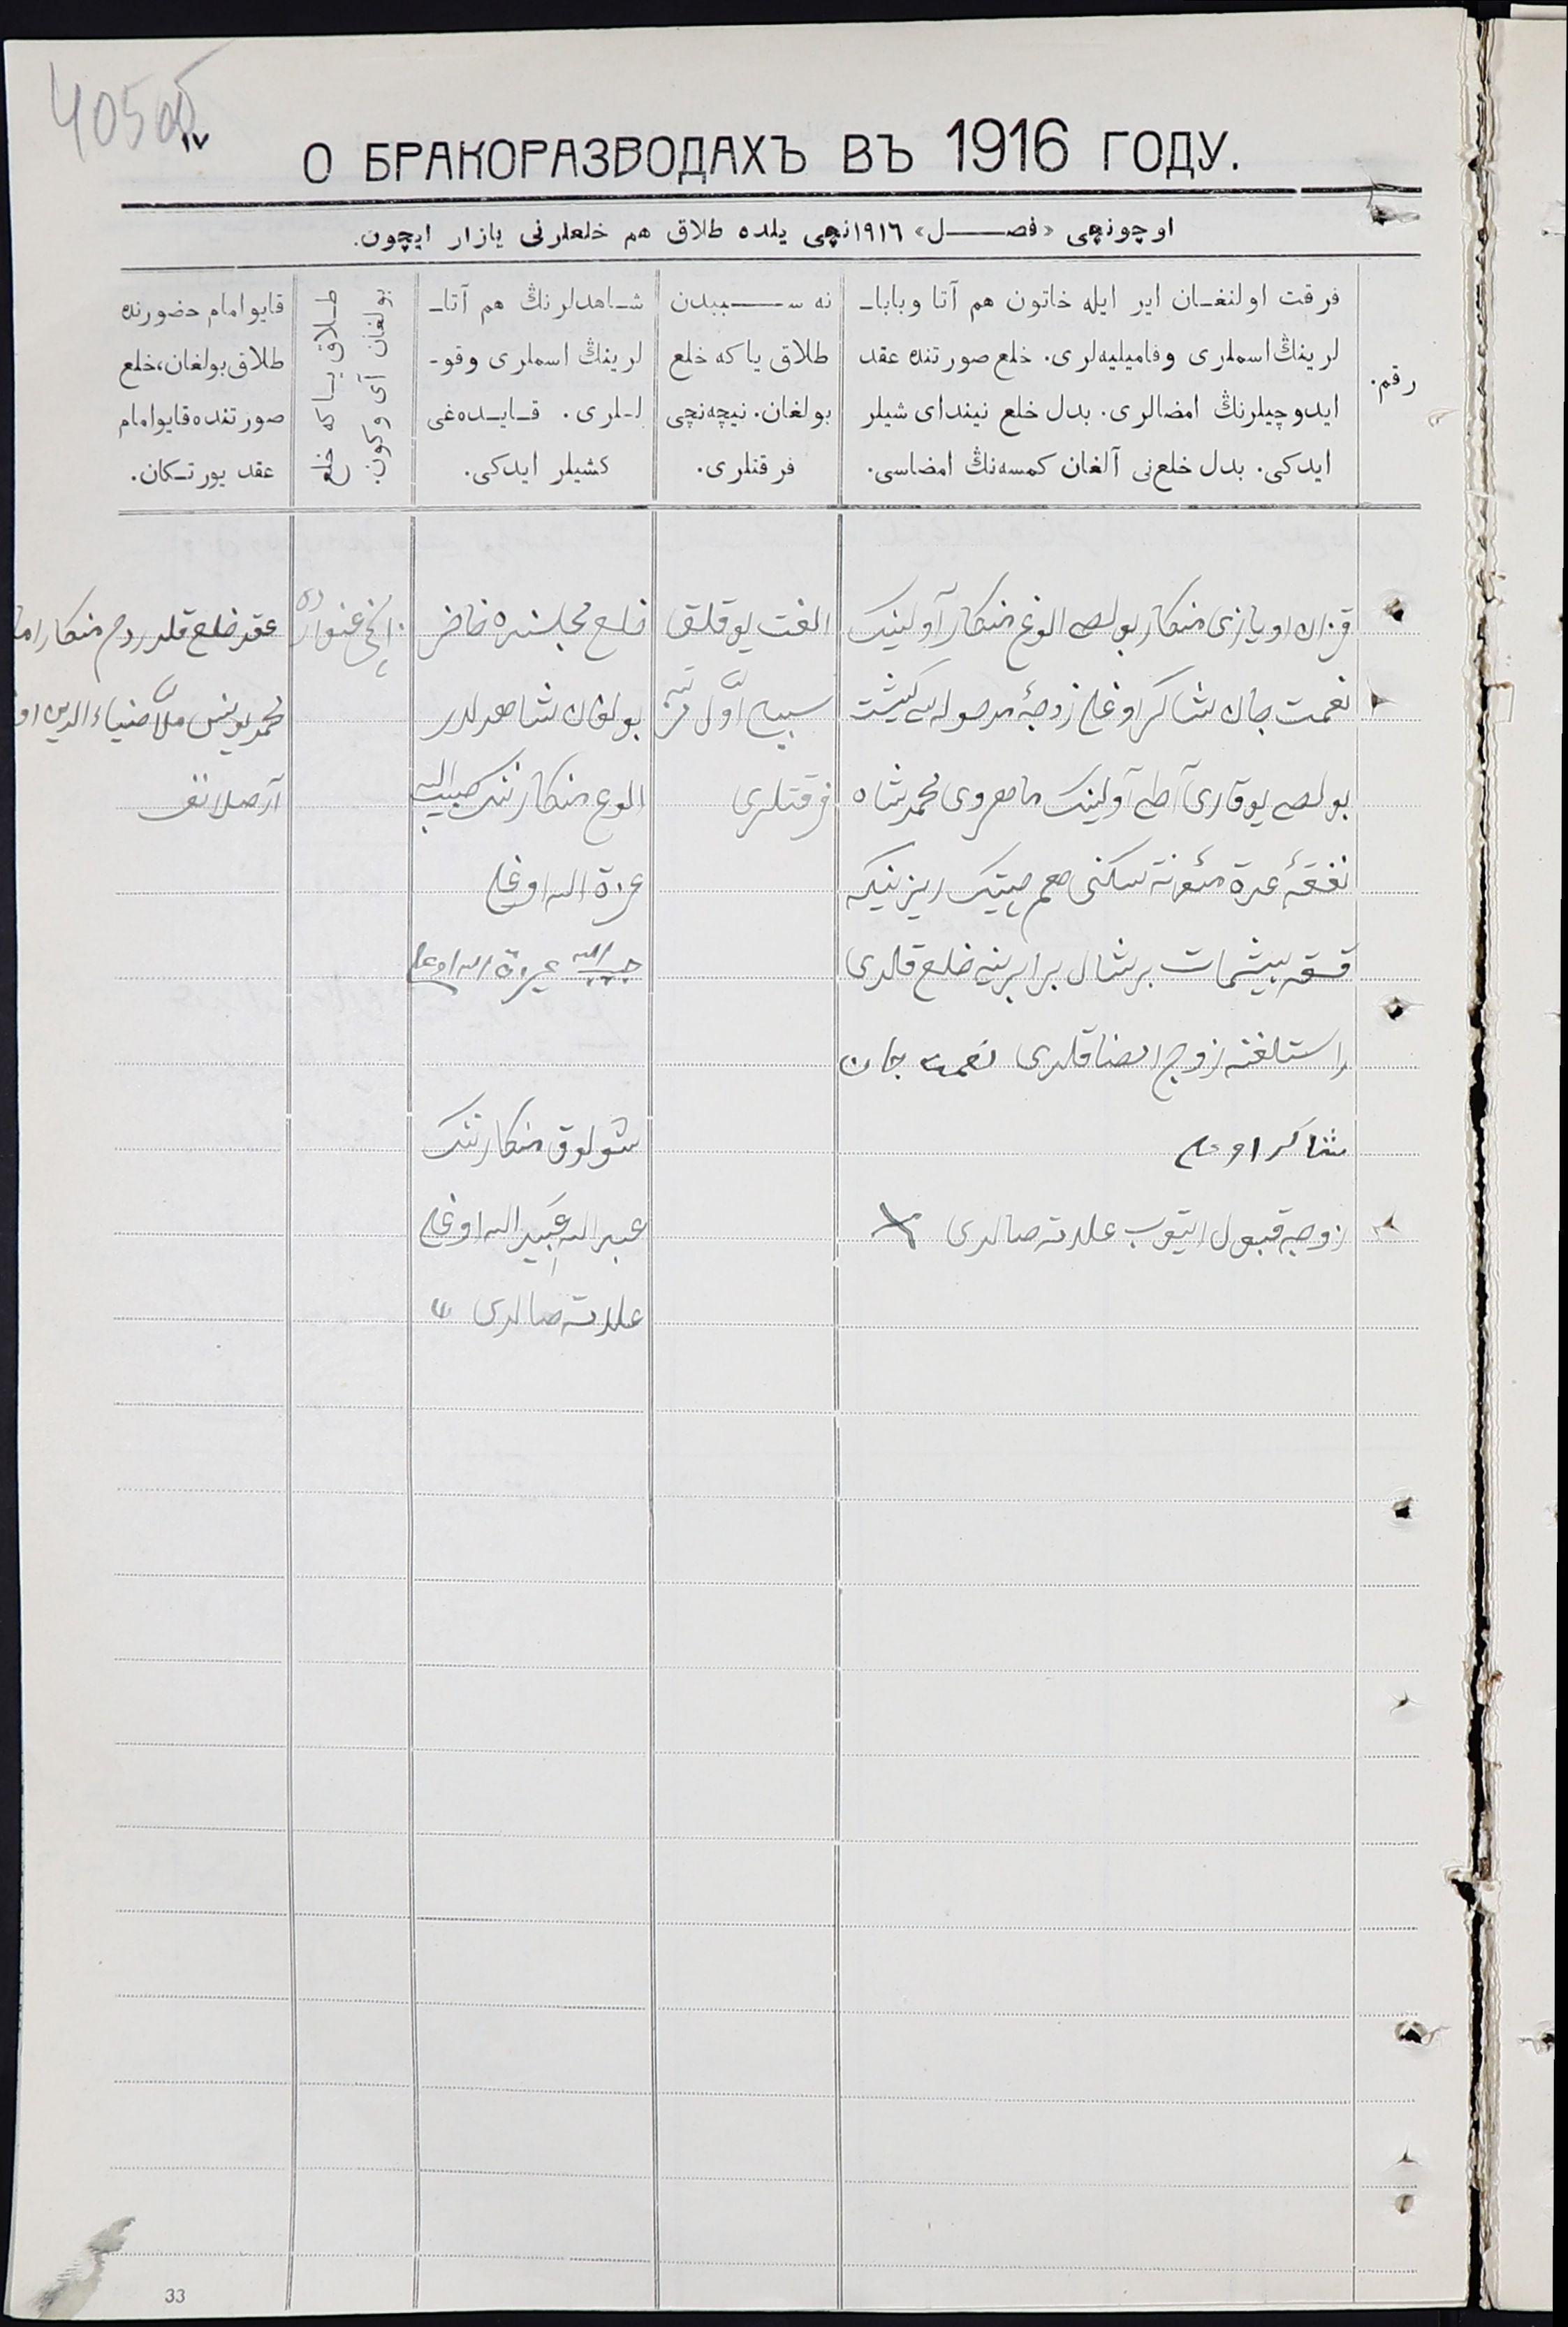 405об
١٧
О БРАКОРАЗВОДАХЪ ВЪ 1916 ГОДУ.
اوچونچی «فصـــل» ١٩١٦نچی یلده طلاق هم خلعلرنی یازار ایچون.
رقم.
فرقت اولنغـان ایر ایله خاتون هم آتا وباباـ
لرینڭ اسملری وفامیلیه‌لری. خلع صورتنده عقد
ایدوچیلرنڭ امضالری. بدل خلع نیندای شیلر
ایدكی. بدل خلع‌نی آلغان كمسه‌نڭ امضاسی.
نه ســـببدن
طلاق یا كه خلع
بولغان. نیچه‌نچی
فرقتلری.
شـاهدلرنڭ هم آتاـ
لرینڭ اسملری وقوـ
لـلری. قـایـده‌غی
كشیلر ایدكی.
طـلاق یـا كه خلع
بولغان آی وكون.
قایو امام حضورنده
طلاق بولغان، خلع
صورتنده قایو امام
عقد یورتـكان.
قزان اویازی منكار بولص الوغ منكار آولینك
نعمت جان شاكر اوغلی زوجهٔ مدخوله سی
بولص یوقاری آولینك محمدشاه
نفقهٔ عدة مئونة سكنی هم
بر شال برابرینه خلع قلدی
راستلغنه زوج امضا قلدی نعمت جان
شاكر اوغلی
زوجه قبول ایتوب علامة صالدی X
الفت یوقلق
سببلی اوّل
فرقتلری
خلع مجلسنده حاضر
بولغان شاهدلر
الوغ منكارننك حبیب الله
عبادة الله اوغلی
حبیب الله عبادة الله اوغلی
منكارننك
عبدالله عبیدالله اوغلی
علامة صالدی
١٠نچی غنوارده
عقد خلع قلدردم منكار
محمد یونس ملّا ضیاءالدین
آرصلانف
33